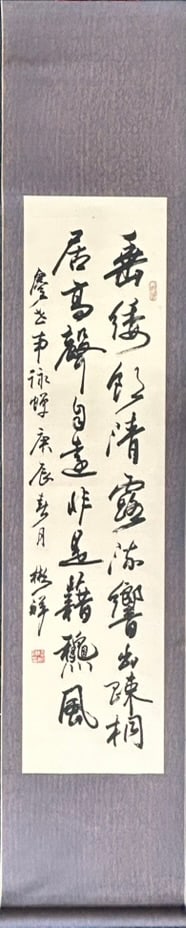 垂緌飲清露流響出疎桐
居高聲自遠非是藉穐風
虞世南詠蟬庚辰春月